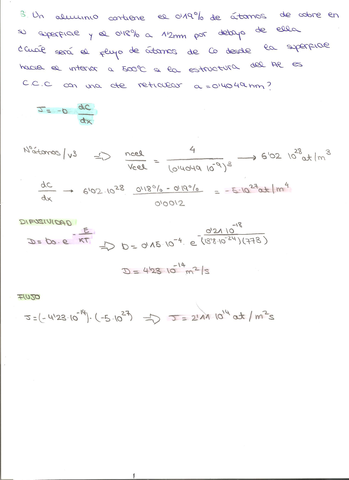 3 Un aluminio contiene el 0'19% de átomos de cobre en
su superficie y el 0'18% a 1'2mm por debajo de ella
¿Cuál será el flujo de átomos de Cu desde la superficie
hacia el interior a 500ºC si la estructura del Al es
C.C.C con una cte reticular a = 0'4049 nm?
J = -D · dC/dx
Nºátomos/v³ ⇒ ncel/Vcel = 4/(0'4049·10⁻⁹)³ → 6'02 10²⁸ at/m³
dC/dx → 6'02 10²⁸ 0'18% - 0'19%/0'0012 = -5·10²⁷ at/m⁴
DIFUSIVIDAD
D = D₀ · e^(-E/KT) ⇒ D = 0'15 10⁻⁴ · e^(-0'21 10⁻¹⁸/(13'8·10⁻²⁴)(773))
D = 4'23·10⁻¹⁴ m²/s
FLUJO
J = (-4'23·10⁻¹⁴)·(-5·10²⁷) ⇒ J = 2'11 10¹⁴ at/m²s